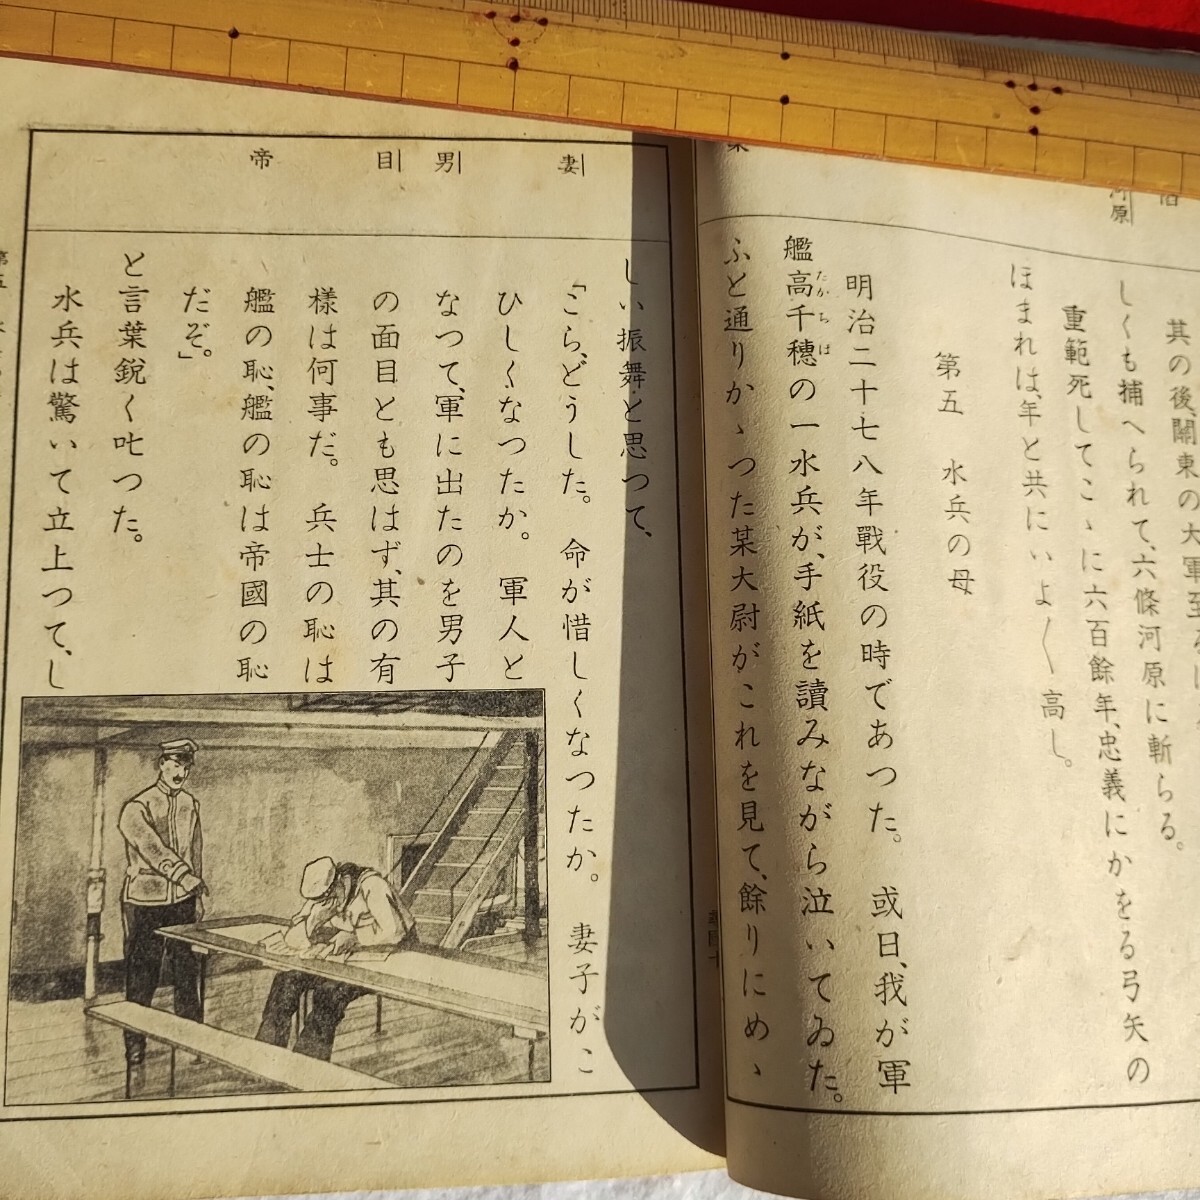 其の後、關東の大軍至
しくも捕へられて、六條河原に斬らる。
重範死してこゝに六百餘年、忠義にかをる弓矢の
ほまれは、年と共にいよ〱高し。
第五　水兵の母
明治二十七八年戰役の時であつた。或日、我が軍
艦高千穗の一水兵が、手紙を讀みながら泣いてゐた。
たかちほ
ふと通りかゝつた某大尉がこれを見て、餘りにめゝ
河原
しい振舞と思つて、
「こら、どうした。命が惜しくなつたか。妻子がこ
ひしくなつたか。軍人と
なつて、軍に出たのを男子
の面目とも思はず、其の有
樣は何事だ。兵士の恥は
艦の恥、艦の恥は帝國の恥
だぞ。」
と言葉鋭く叱つた。
水兵は驚いて立上つて、し
妻
男
目
帝
第五